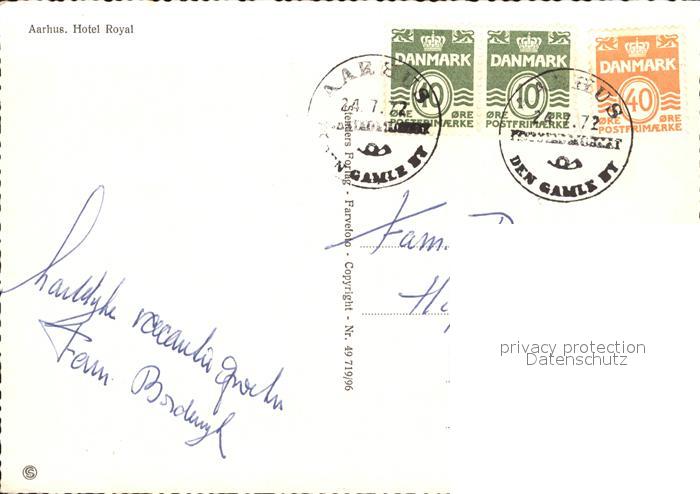 Aarhus. Hotel Royal
DANMARK
10
ØRE ØRE
POSTFRIMÆRKE
DANMARK
10
ØRE ØRE
POSTFRIMÆRKE
DANMARK
40
ØRE ØRE
POSTFRIMÆRKE
AARHUS
24.7.72
DEN GAMLE BY
AARHUS
24.7.72
DEN GAMLE BY
Stenders Forlag - Farvefoto - Copyright - Nr. 49 719/96
Fam.
hartelijke vacantie groeten
Fam.
privacy protection
Datenschutz